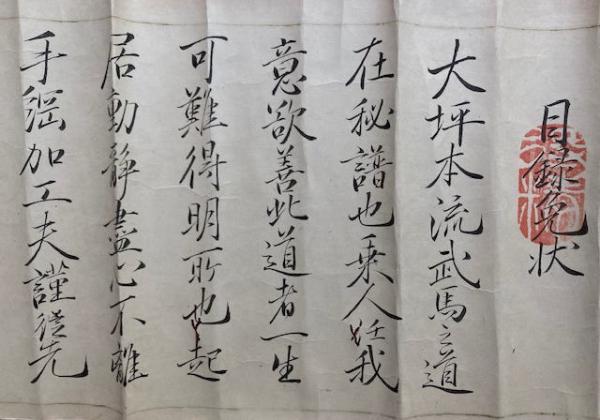 目録免状
大坪本流武馬之道
在秘譜也乗人任我
意欲善此道者一生
可難得明所也起
居動静盡心不離
手綱加工夫謹従先